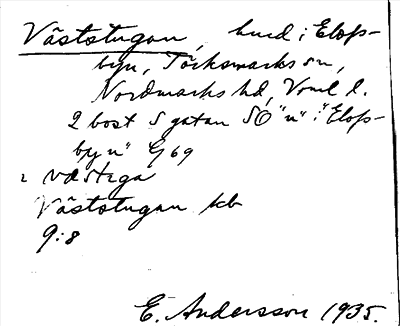 Väststugan, hmd i Elofs-
byn, Töcksmarks sn,
Nordmarks hd, Vrml l.
2 bost S gatan SO "u" i "Elofs-
byn" G 69
västega
Väststugan kb
9:8
E. Andersson 1935.